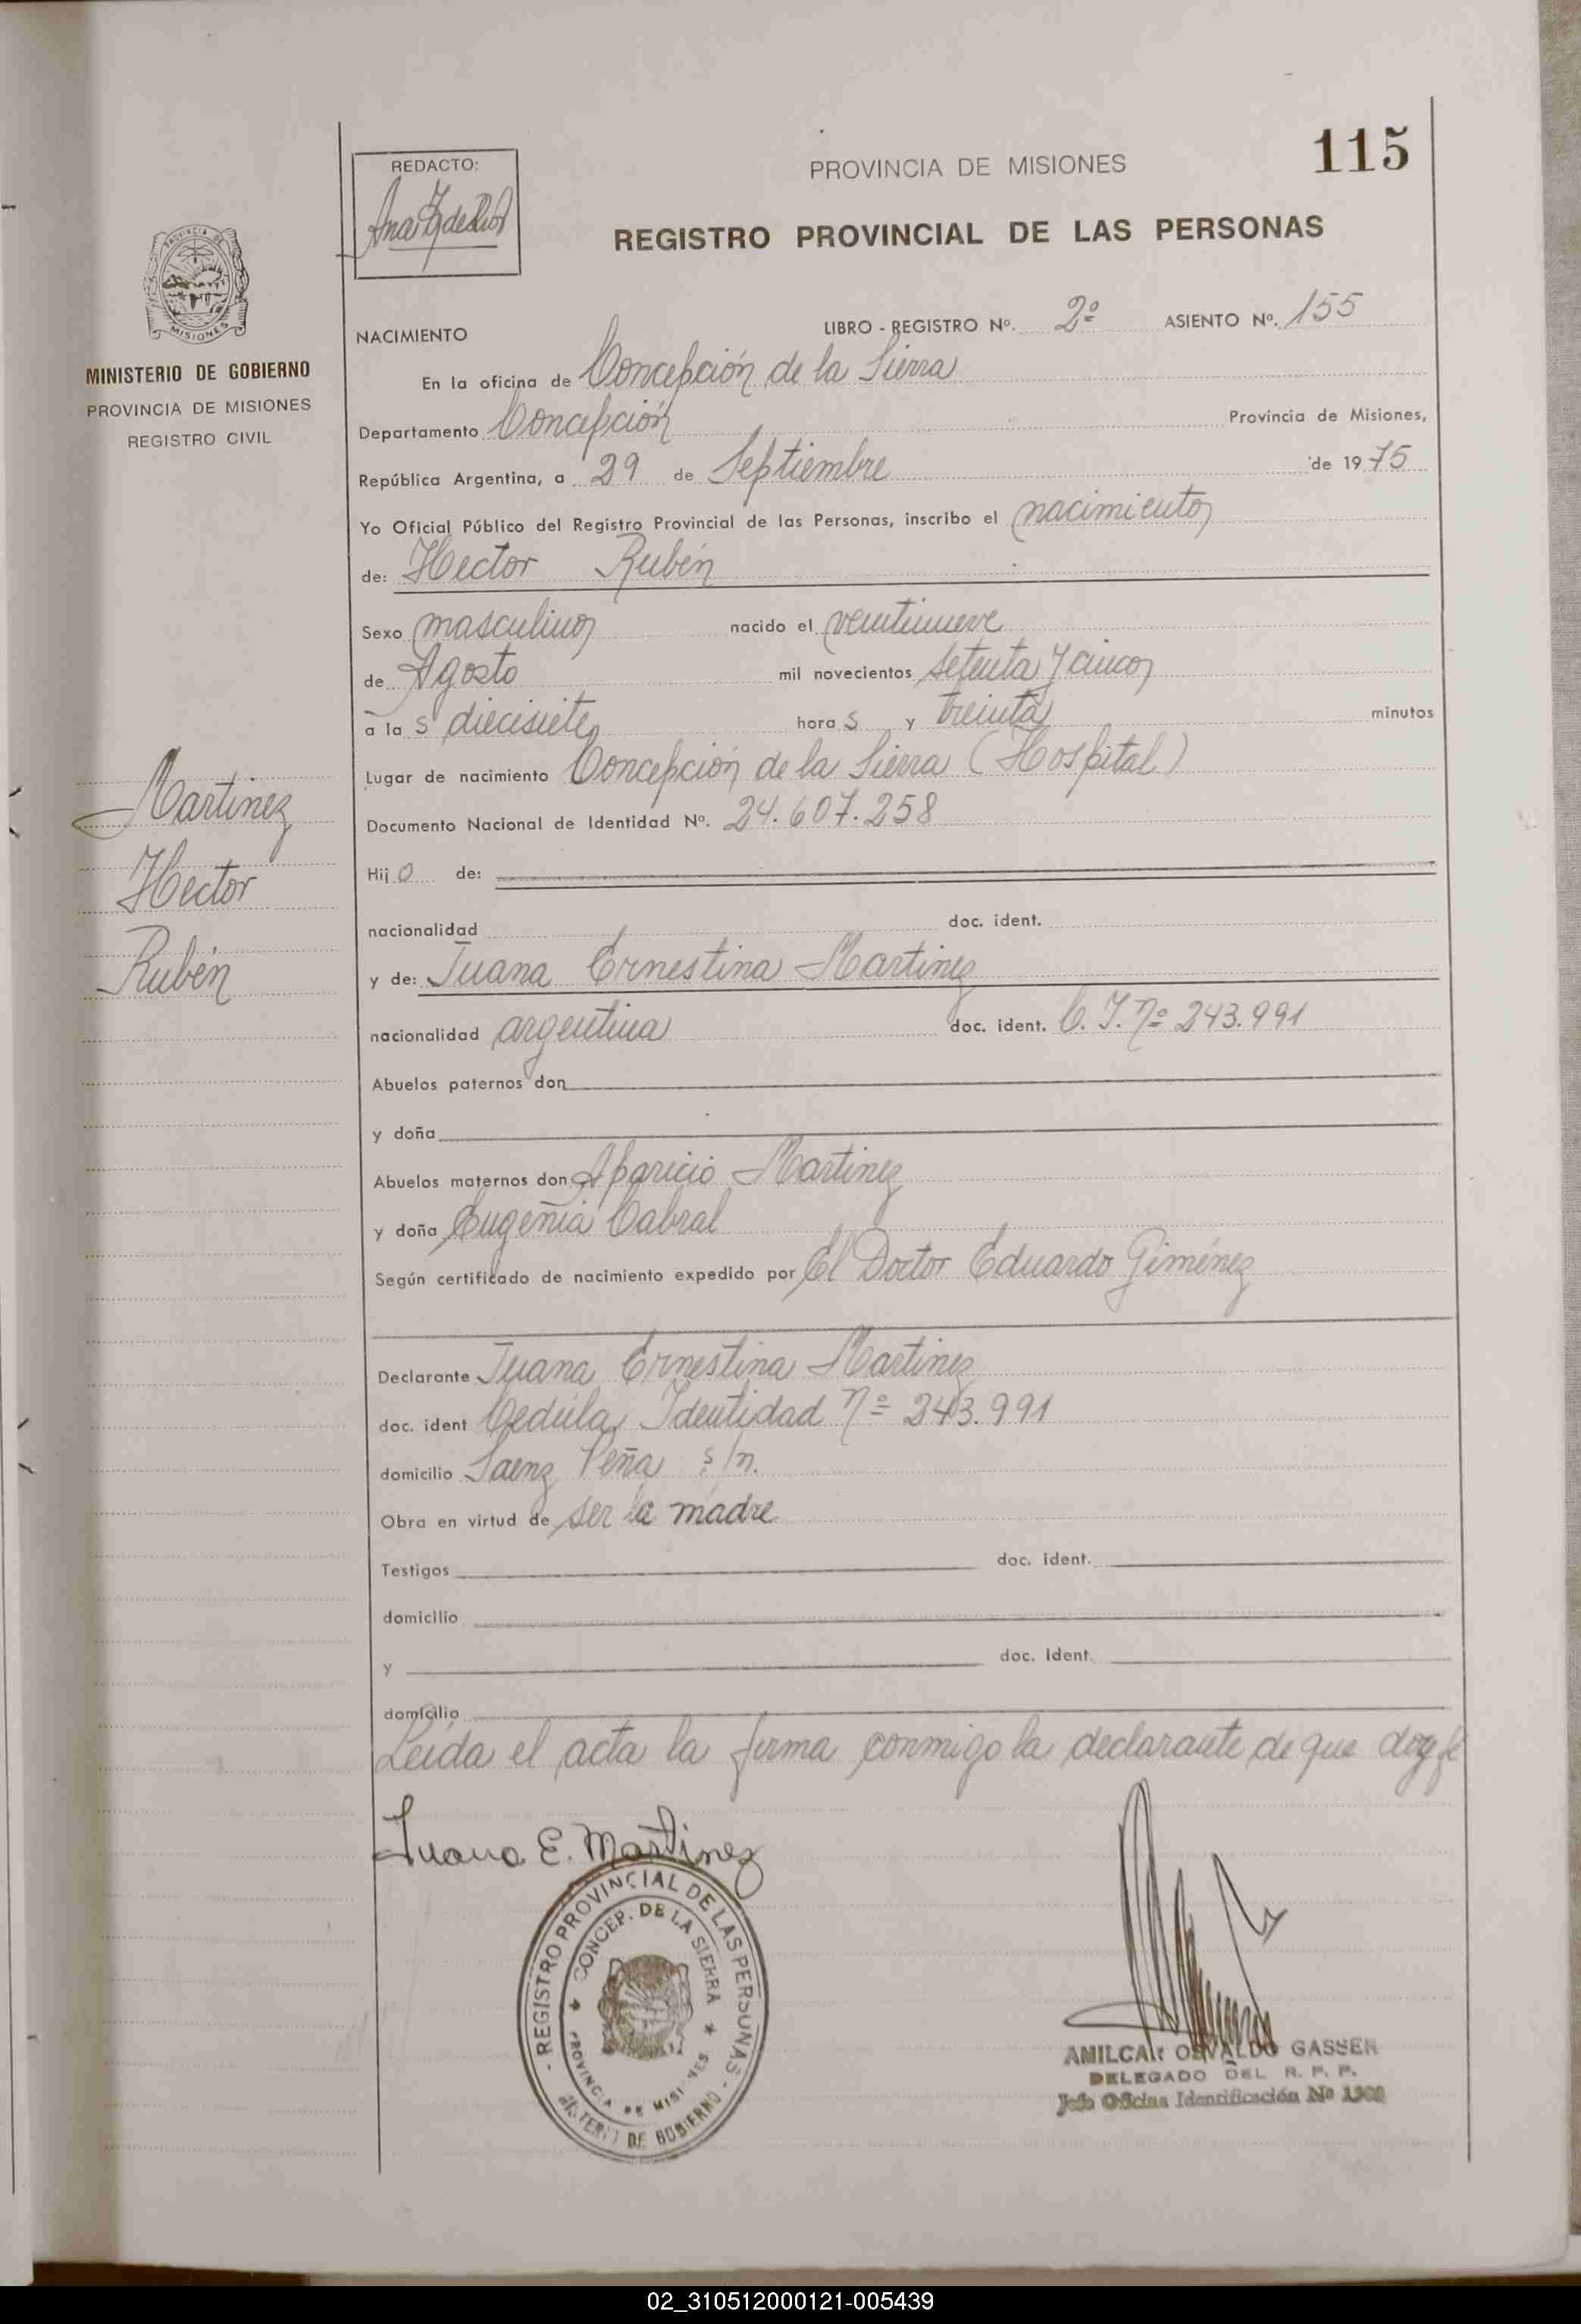 115
REDACTO:
PROVINCIA DE MISIONES
REGISTRO PROVINCIAL DE LAS PERSONAS
PROVINCIA DE
MISIONES
MINISTERIO DE GOBIERNO
PROVINCIA DE MISIONES
REGISTRO CIVIL
NACIMIENTO LIBRO - REGISTRO Nº. 2º ASIENTO Nº. 155
En la oficina de Concepción de la Sierra
Departamento Concepción Provincia de Misiones,
República Argentina, a 29 de Septiembre de 1975
Yo Oficial Público del Registro Provincial de las Personas, inscribo el nacimiento
de: Hector Rubén
Sexo masculino nacido el veintinueve
de Agosto mil novecientos setenta y cinco
a las diecisiete horas y treinta minutos
Lugar de nacimiento Concepción de la Sierra (Hospital)
Documento Nacional de Identidad Nº. 24.607.258
Hijo de:
nacionalidad doc. ident.
y de: Juana Ernestina Martinez
nacionalidad argentina doc. ident. C.I. nº 243.991
Abuelos paternos don
y doña
Abuelos maternos don Aparicio Martinez
y doña Eugenia Cabral
Según certificado de nacimiento expedido por El Doctor Eduardo Giménez
Declarante Juana Ernestina Martinez
doc. ident Cedúla Identidad nº 243.991
domicilio Saenz Peña s/n.
Obra en virtud de ser la madre
Testigos doc. ident.
domicilio
y doc. ident.
domicilio
Leída el acta la firma conmigo la declarante de que doy fe
Martinez
Hector
Rubén
Juana E. Martinez
- REGISTRO PROVINCIAL DE LAS PERSONAS -
CONCEP. DE LA SIERRA
PROVINCIA DE MISIONES
MINISTERIO DE GOBIERNO
AMILCAR OSVALDO GASSER
DELEGADO DEL R. P. P.
Jefe Oficina Identificación Nº
02_310512000121-005439